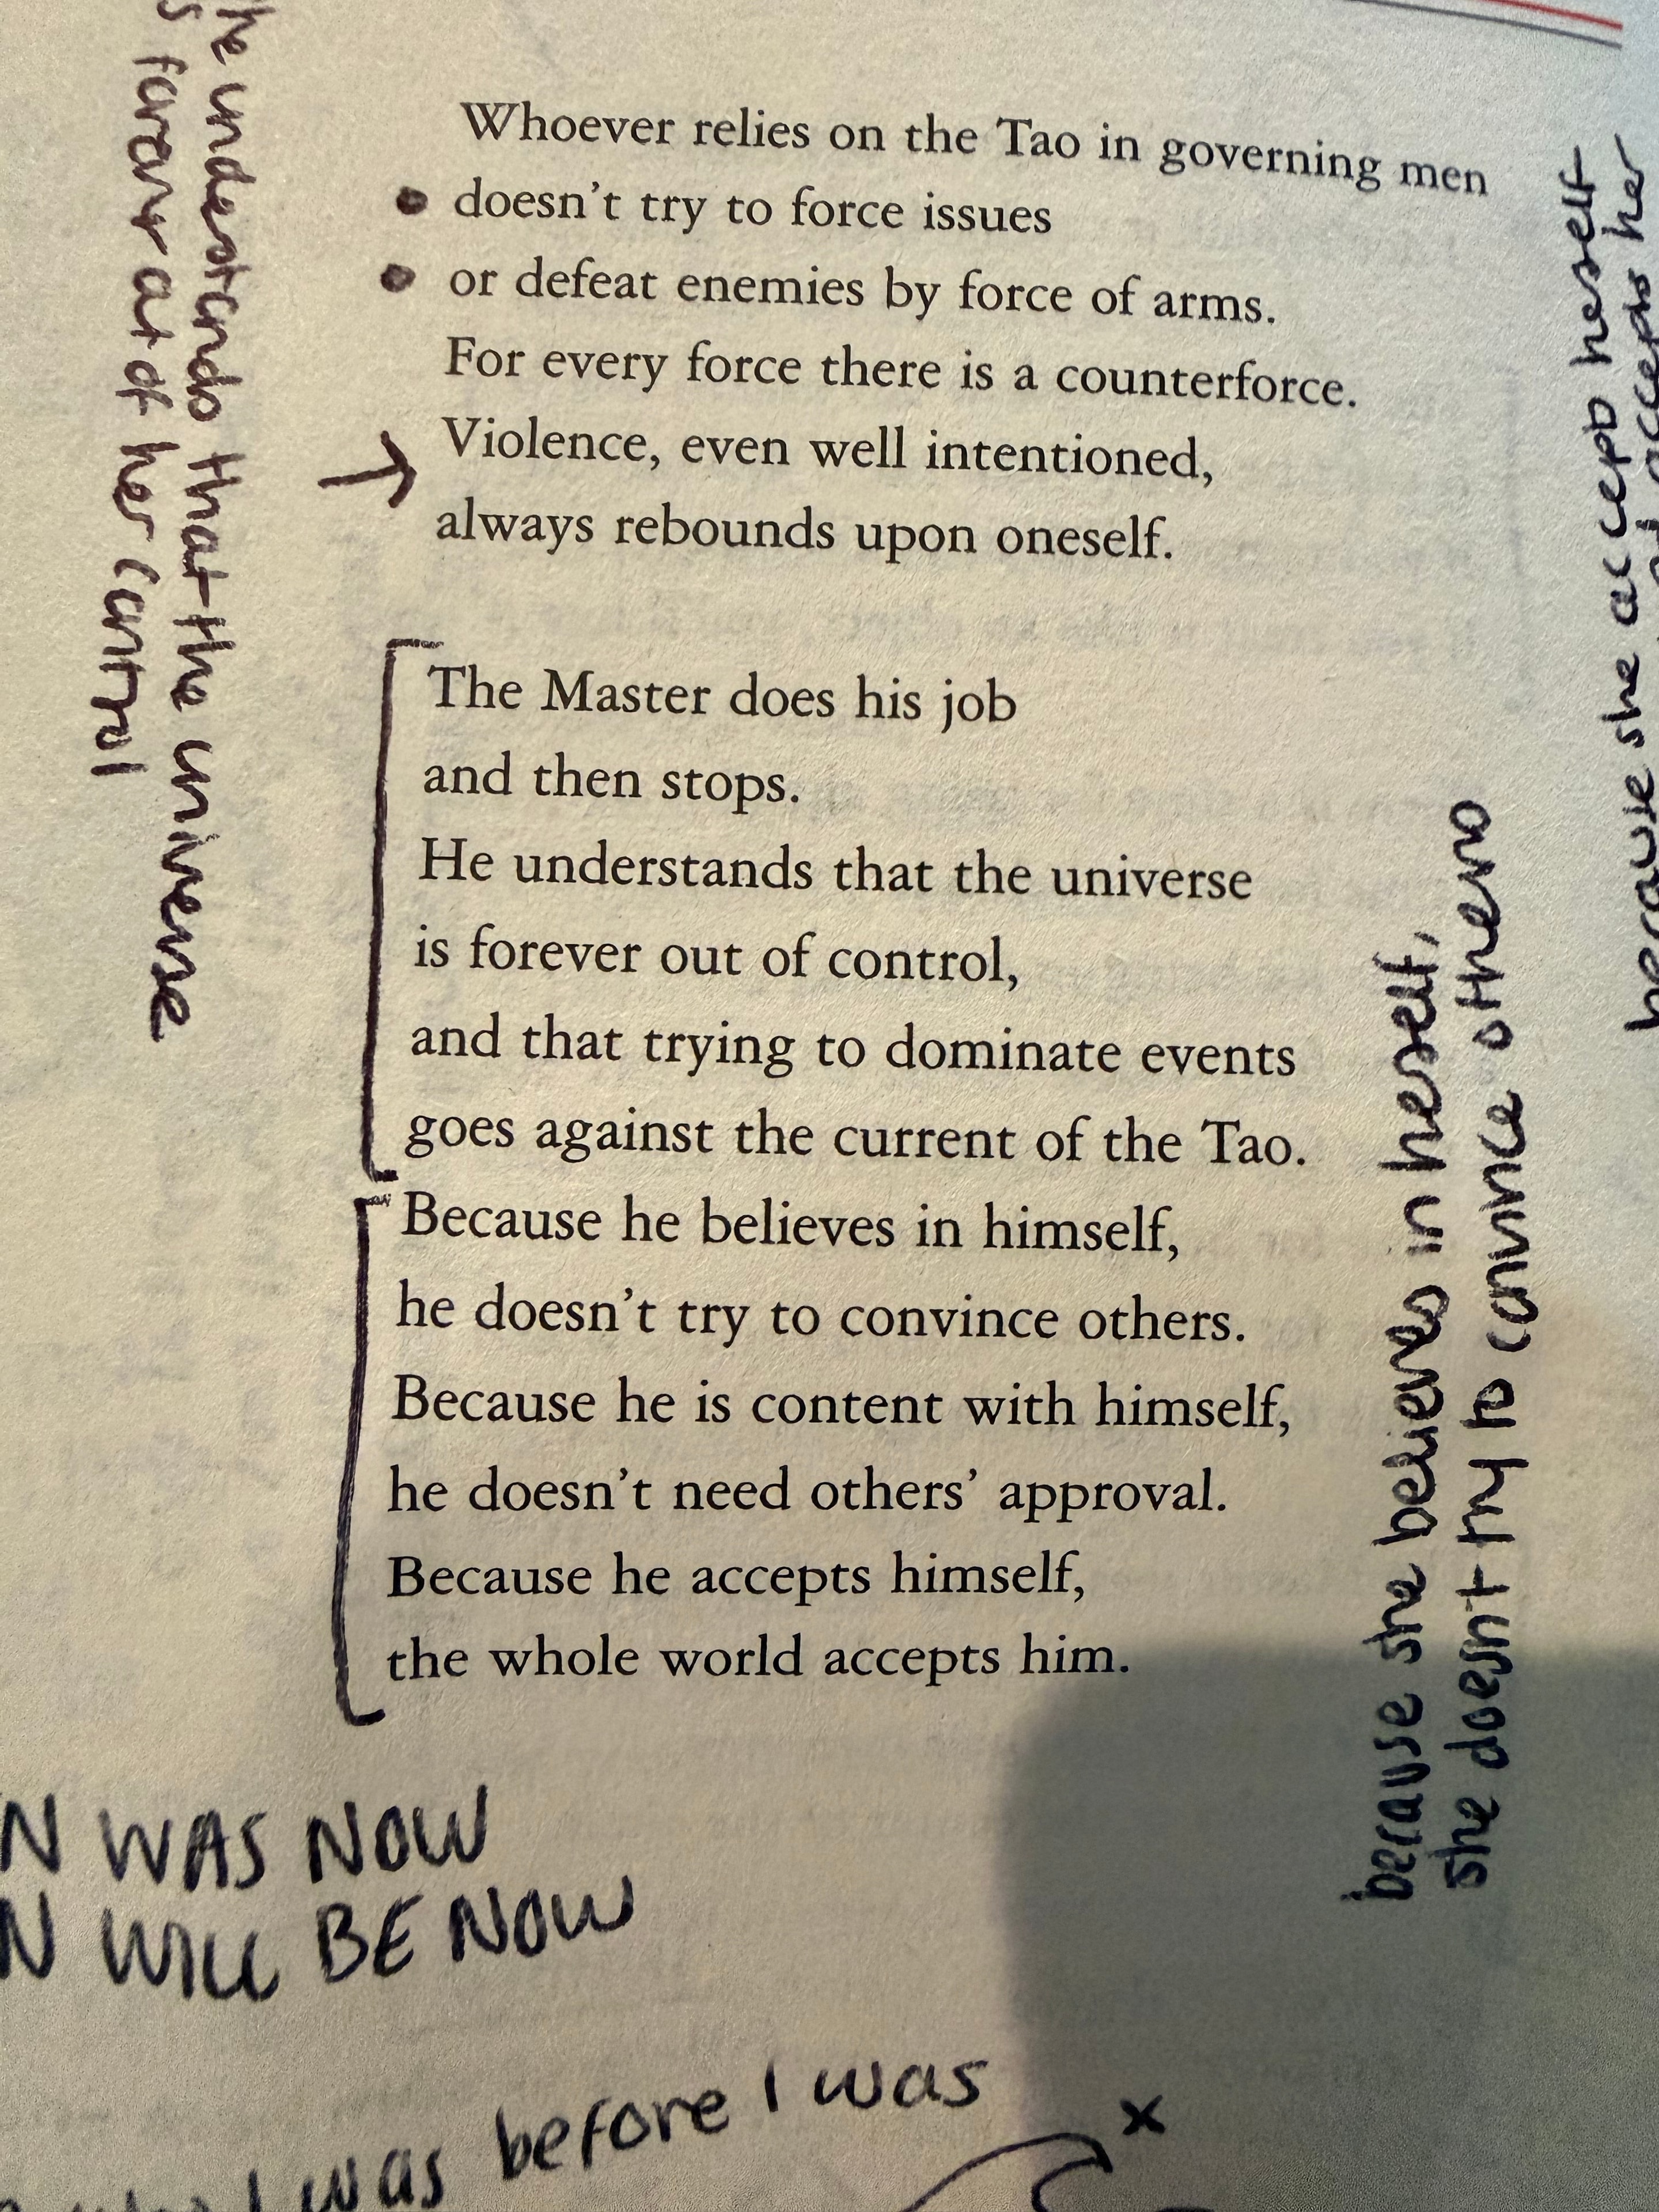 Whoever relies on the Tao in governing men
doesn't try to force issues
or defeat enemies by force of arms.
For every force there is a counterforce.
Violence, even well intentioned,
always rebounds upon oneself.
The Master does his job
and then stops.
He understands that the universe
is forever out of control,
and that trying to dominate events
goes against the current of the Tao.
Because he believes in himself,
he doesn't try to convince others.
Because he is content with himself,
he doesn't need others' approval.
Because he accepts himself,
the whole world accepts him.
he understands that the universe
forever out of her control
because she believes in herself,
she doesn't try to convince others
because she accepts herself
accepts her
N WAS NOW
N WILL BE NOW
I was before I was
x